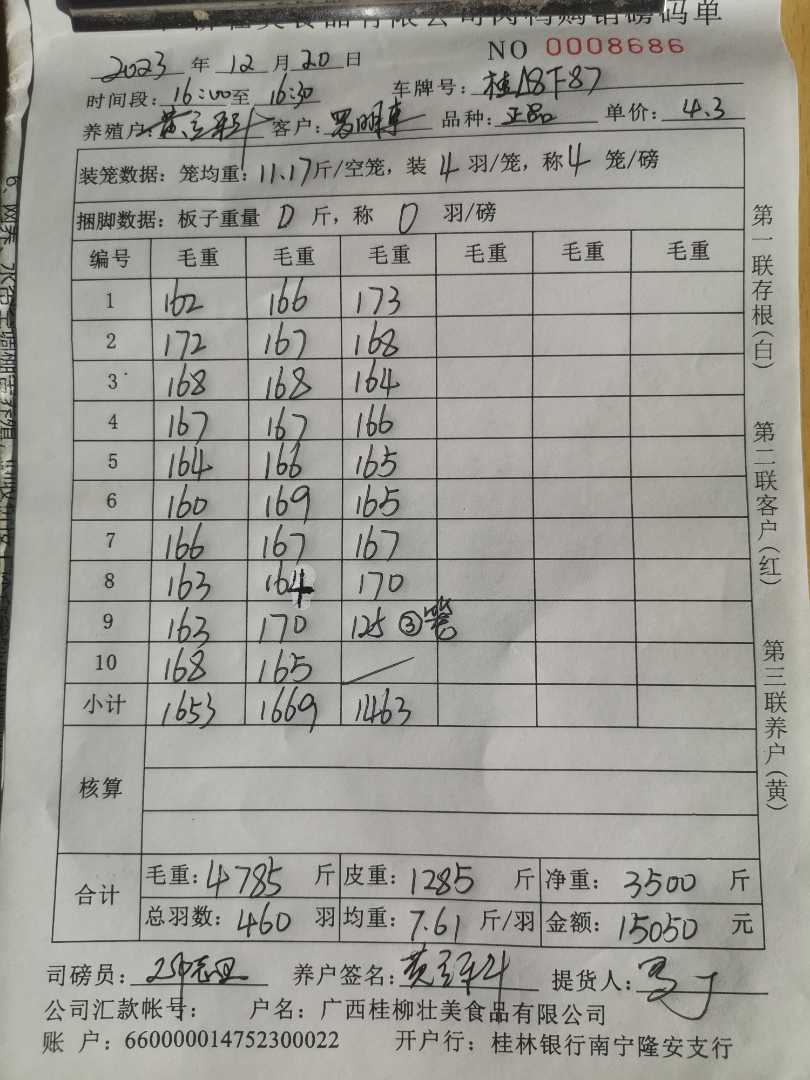 壮美食品有限公司肉鸭购销磅码单
NO 0008686
2023 年 12 月 20 日
时间段: 16:00 至 16:30 车牌号: 桂A8F87
养殖户: 客户: 罗明 品种: 正品 单价: 4.3
装笼数据: 笼均重: 11.17 斤/空笼, 装 4 羽/笼, 称 4 笼/磅
捆脚数据: 板子重量 0 斤, 称 0 羽/磅
编号 毛重 毛重 毛重 毛重 毛重 毛重
1 162 166 173
2 172 167 168
3 168 168 164
4 167 167 166
5 164 166 165
6 160 169 165
7 166 167 167
8 163 164 170
9 163 170 125 ③笼
10 168 165
小计 1653 1669 1463
核算
合计
毛重: 4785 斤 皮重: 1285 斤 净重: 3500 斤
总羽数: 460 羽 均重: 7.61 斤/羽 金额: 15050 元
司磅员: 养户签名: 提货人:
公司汇款帐号: 户名: 广西桂柳壮美食品有限公司
账 户: 660000014752300022 开户行: 桂林银行南宁隆安支行
第一联存根(白)
第二联客户(红)
第三联养户(黄)